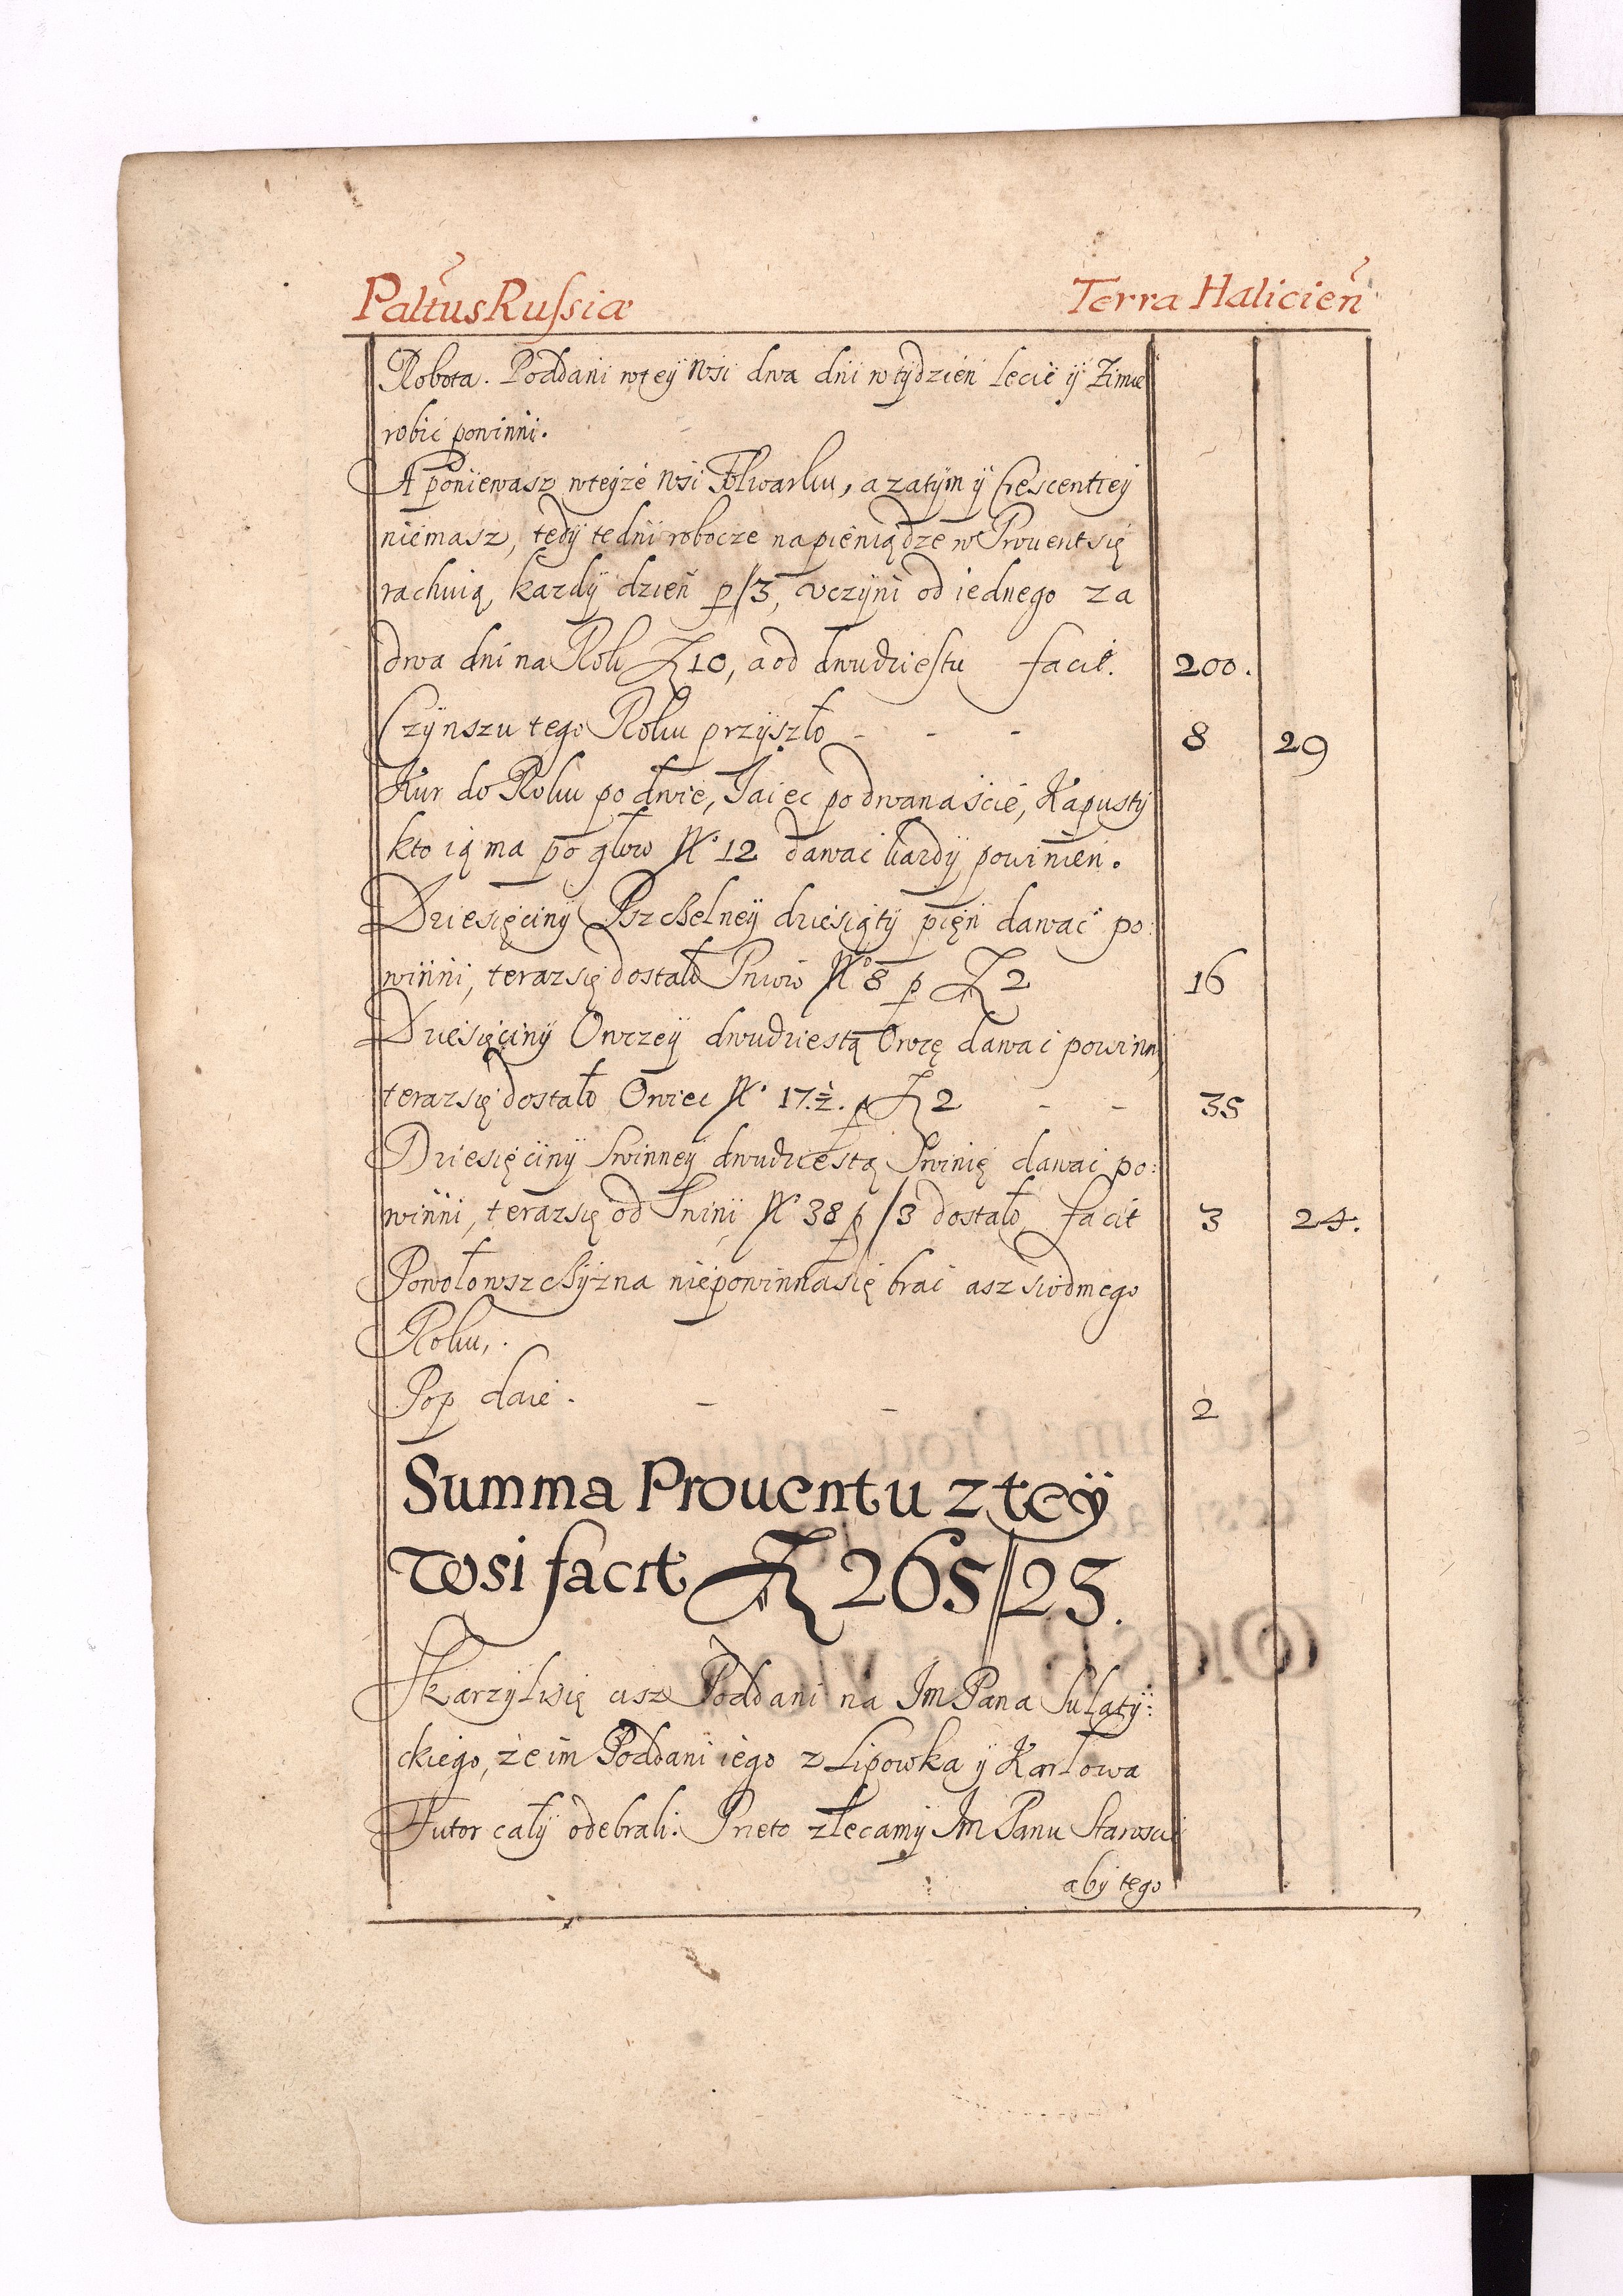 Paltus Russiæ Terra Halicień
Robota. Poddani wtey Wsi dwa dni wtydzień Lecie ÿ Zimie
robić powinni.
A poniewasz wteyże Wsi Folwarku, a zatym ÿ Crescentiey
niemasz, tedÿ te dni robocze na pieniądze w Prouent się
rachuią, kazdÿ dzień p /3, vczÿni od iednego za
dwa dni na Rok Zł 10, a od dwudziestu facit. 200.
Czÿnszu tego Roku przÿszło - - - 8 29
Kur do Roku po dwie, Jaiec po dwanaście, Kapustÿ
kto ią ma po głow N° 12 dawać kazdÿ powinien.
Dziesięcinÿ Pszczelneÿ dziesiątÿ pień dawać po:
winni, teraz się dostało Pniow N° 8 p Zł 2 16
Dziesięcinÿ Owczeÿ dwudziestą Owcę dawać powinni
teraz się dostało Owiec N° 17.½. p Zł 2 - - 35
Dziesięcinÿ Swinneÿ dwudziestą Swinię dawać po:
winni, teraz się od Swini N° 38 p /3 dostało facit 3 24.
Powołowszczÿzna niepowinna się brać asz siodmego
Roku,.
Pop daie. - - 2
Summa Prouentu z teÿ
Wsi facit Zł 265//23.
Skarzyli się cisz Poddani na Jm Pana Sulatÿ:
ckiego, że im Poddani iego z Lipowka ÿ Karłowa
Futor całÿ odebrali. Przeto zlecamÿ Jm Panu Staroscie
abÿ tego